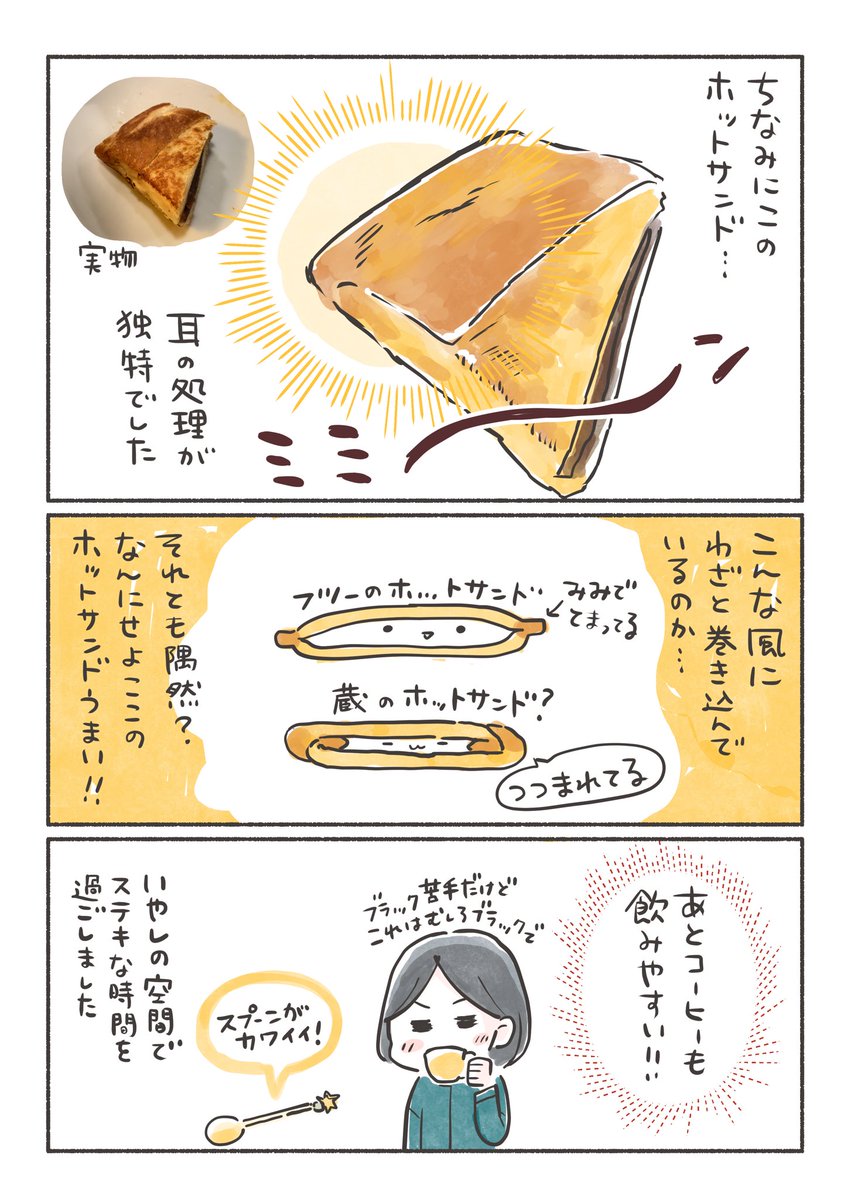 ちなみにこの
ホットサンド…
実物
耳の処理が
独特でした
ミミーン
こんな風に
わざと巻き込んで
いるのか…
フツーのホットサンド‥
みみで
とまってる
蔵のホットサンド?
つつまれてる
それとも偶然?
なんにせよここの
ホットサンドうまい!!
あとコーヒーも
飲みやすい!!
ブラック苦手だけど
これはむしろブラックで
スプーンが
カワイイ!
いやしの空間で
ステキな時間を
過ごしました